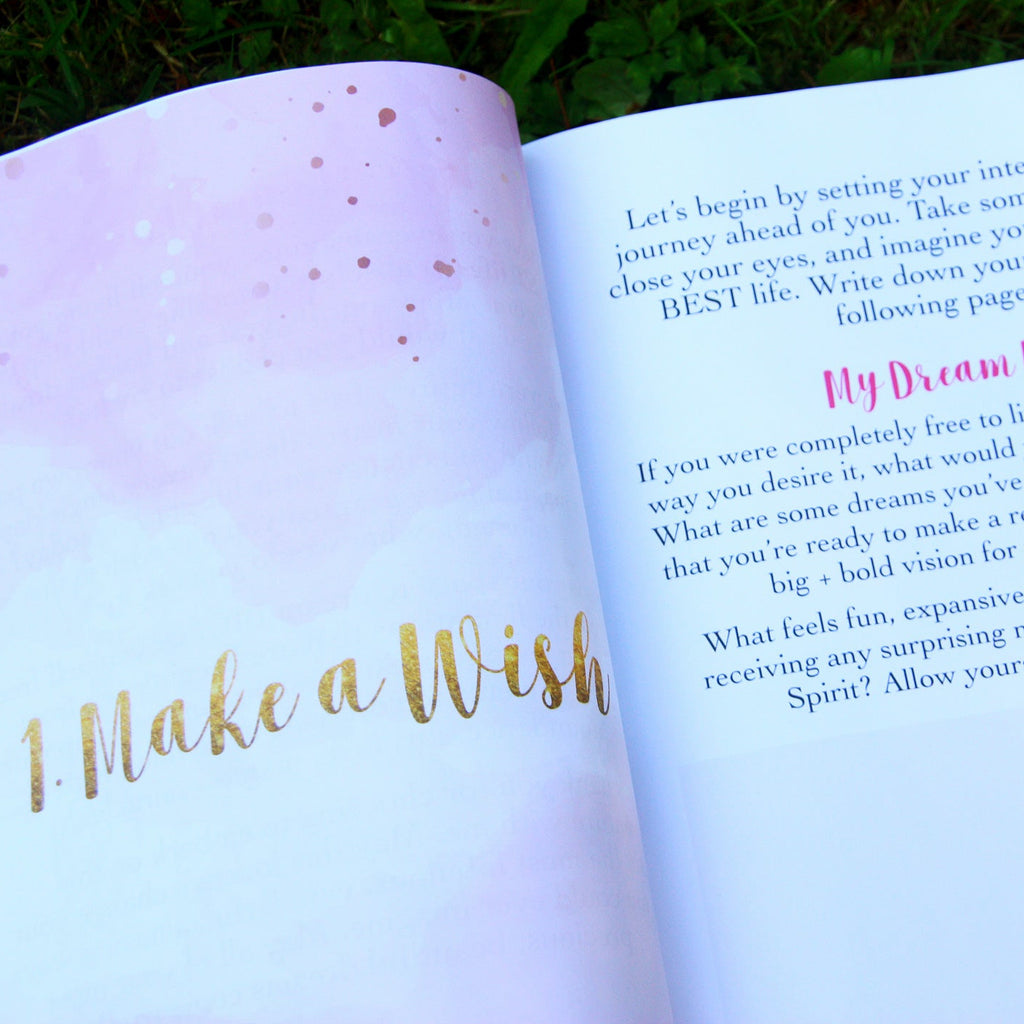 1. Make a Wish
Let's begin by setting your inte
journey ahead of you. Take som
close your eyes, and imagine yo
BEST life. Write down you
following page
My Dream
If you were completely free to li
way you desire it, what would
What are some dreams you've
that you're ready to make a re
big + bold vision for
What feels fun, expansive
receiving any surprising
Spirit? Allow your